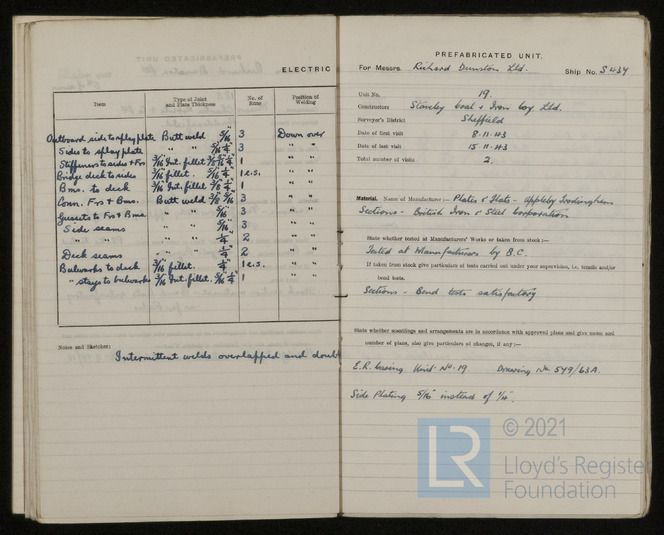 ELECTRIC
Item Type of Joint and Plate Thickness No. of Runs Position of Welding
Outboard side to splay plate Butt weld 5/16" 3 Down over
Sides to splay plate " " 5/16" 1/4" 3 " "
Stiffeners to sides & Frs 3/16 Int. fillet 1 " "
Bridge deck to sides 3/16 fillet. 5/16" 1/4" 1 e.s. " "
Bms. to deck 3/16 Int. fillet 1 " "
Conn. Frs & Bms. Butt weld 3 " "
Gussets to Frs & Bms " " 5/16" 3 " "
Side seams " " 5/16" 3 " "
" " " " 1/4" 2 " "
Deck seams " " 1/4" 2 " "
Bulworks to deck 3/16 fillet. 1/4" 1 e.s. " "
" stays to bulworks 3/16 Int. fillet. 5/16" 1/4" 1 " "
Notes and Sketches:
Intermittent welds overlapped and doubl
PREFABRICATED UNIT.
For Messrs. Richard Dunston Ltd. Ship No. S434
Unit No. 19.
Constructors Staveley Coal & Iron Coy. Ltd.
Surveyor's District Sheffield
Date of first visit 8.11.43
Date of last visit 15.11.43
Total number of visits 2.
Material. Name of Manufacturer:— Plates & Flats - Appleby Frodingham
Sections - British Iron & Steel Corporation
State whether tested at Manufacturers' Works or taken from stock:—
Tested at Manufacturers by B.C.
If taken from stock give particulars of tests carried out under your supervision, i.e. tensile and/or
bend tests.
Sections - Bend tests satisfactory
State whether scantlings and arrangements are in accordance with approved plans and give name and
number of plans, also give particulars of changes, if any:—
E.R. Casing Unit No. 19 Drawing No. 549/63A.
Side Plating 5/16" instead of 1/4".
LR
© 2021
Lloyd's Register
Foundation